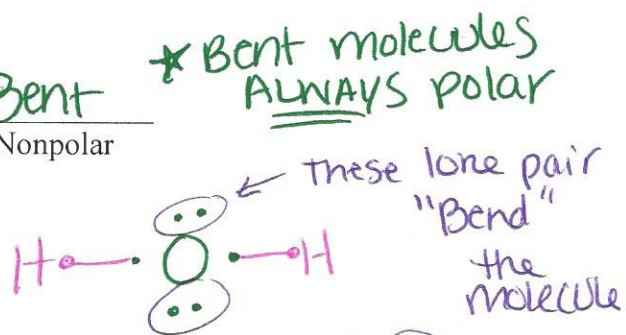 ★ Bent molecules
ALWAYS polar
Bent
Nonpolar
These lone pair
"Bend"
the
molecule
H O H